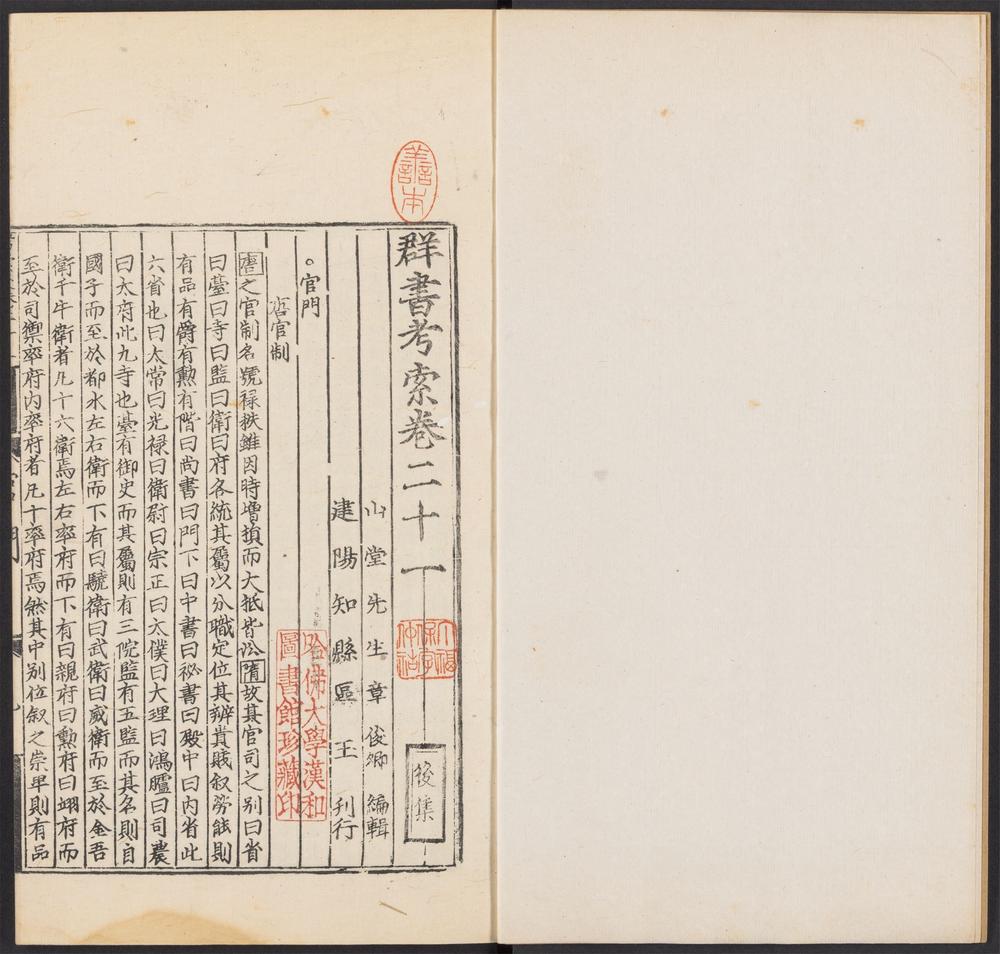 善本
群書考索卷二十一
後集
山堂先生章俊卿編輯
建陽知縣區玉刊行
哈佛大學漢和圖書館珍藏印
○官門
唐官制
唐之官制名號祿秩雖因時增損而大抵皆沿隋故其官司之别曰省
曰臺曰寺曰監曰衛曰府各統其屬以分職定位其辨貴賤叙勞能則
有品有爵有勲有階曰尚書曰門下曰中書曰祕書曰殿中曰内省此
六省也曰太常曰光禄曰衛尉曰宗正曰太僕曰大理曰鴻臚曰司農
曰太府此九寺也臺有御史而其屬則有三院監有五監而其名則自
國子而至於都水左右衛而下有曰驍衛曰武衛曰威衛而至於金吾
衛千牛衛者凡十六衛焉左右率府而下有曰親府曰勲府曰翊府而
至於司禦率府内率府者凡十率府焉然其中别位叙之崇卑則有品
官門